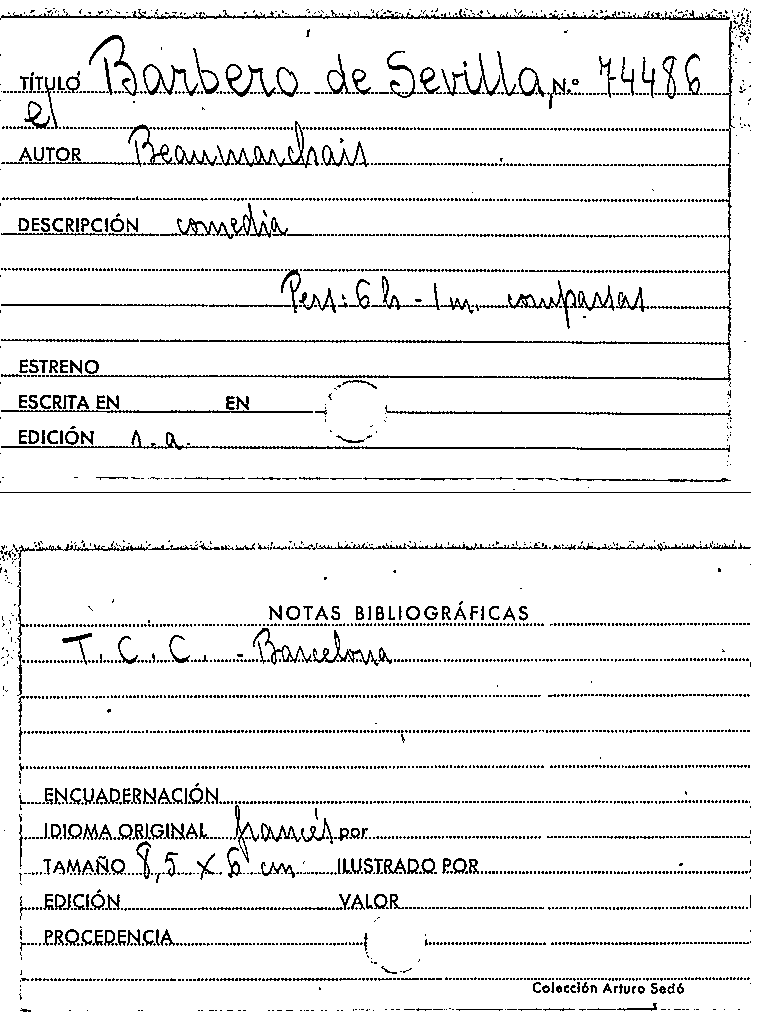 TÍTULO Barbero de Sevilla, N.º 74486
el
AUTOR Beaumarchais
DESCRIPCIÓN comedia
Pers: 6 h - 1 m. comparsas
ESTRENO
ESCRITA EN EN
EDICIÓN s.a.
NOTAS BIBLIOGRÁFICAS
T.C.C. - Barcelona
ENCUADERNACIÓN
IDIOMA ORIGINAL francés por
TAMAÑO 8,5 x 6 cm ILUSTRADO POR
EDICIÓN VALOR
PROCEDENCIA
Colección Arturo Sedó